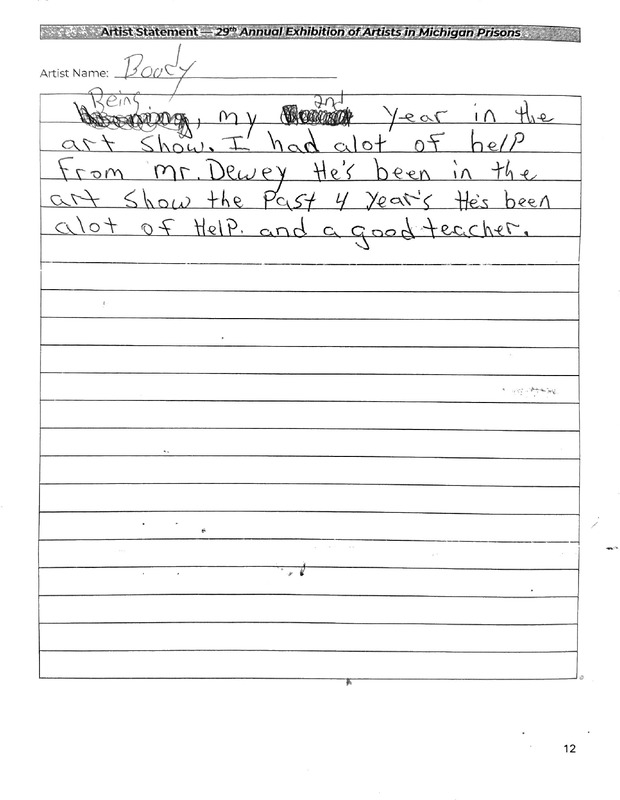 Artist Statement — 29th Annual Exhibition of Artists in Michigan Prisons
Artist Name: Boody
Being, my 2nd Year in the
art show. I had alot of help
From mr. Dewey He's been in the
art show the Past 4 Year's He's been
alot of HelP. and a good teacher.
12